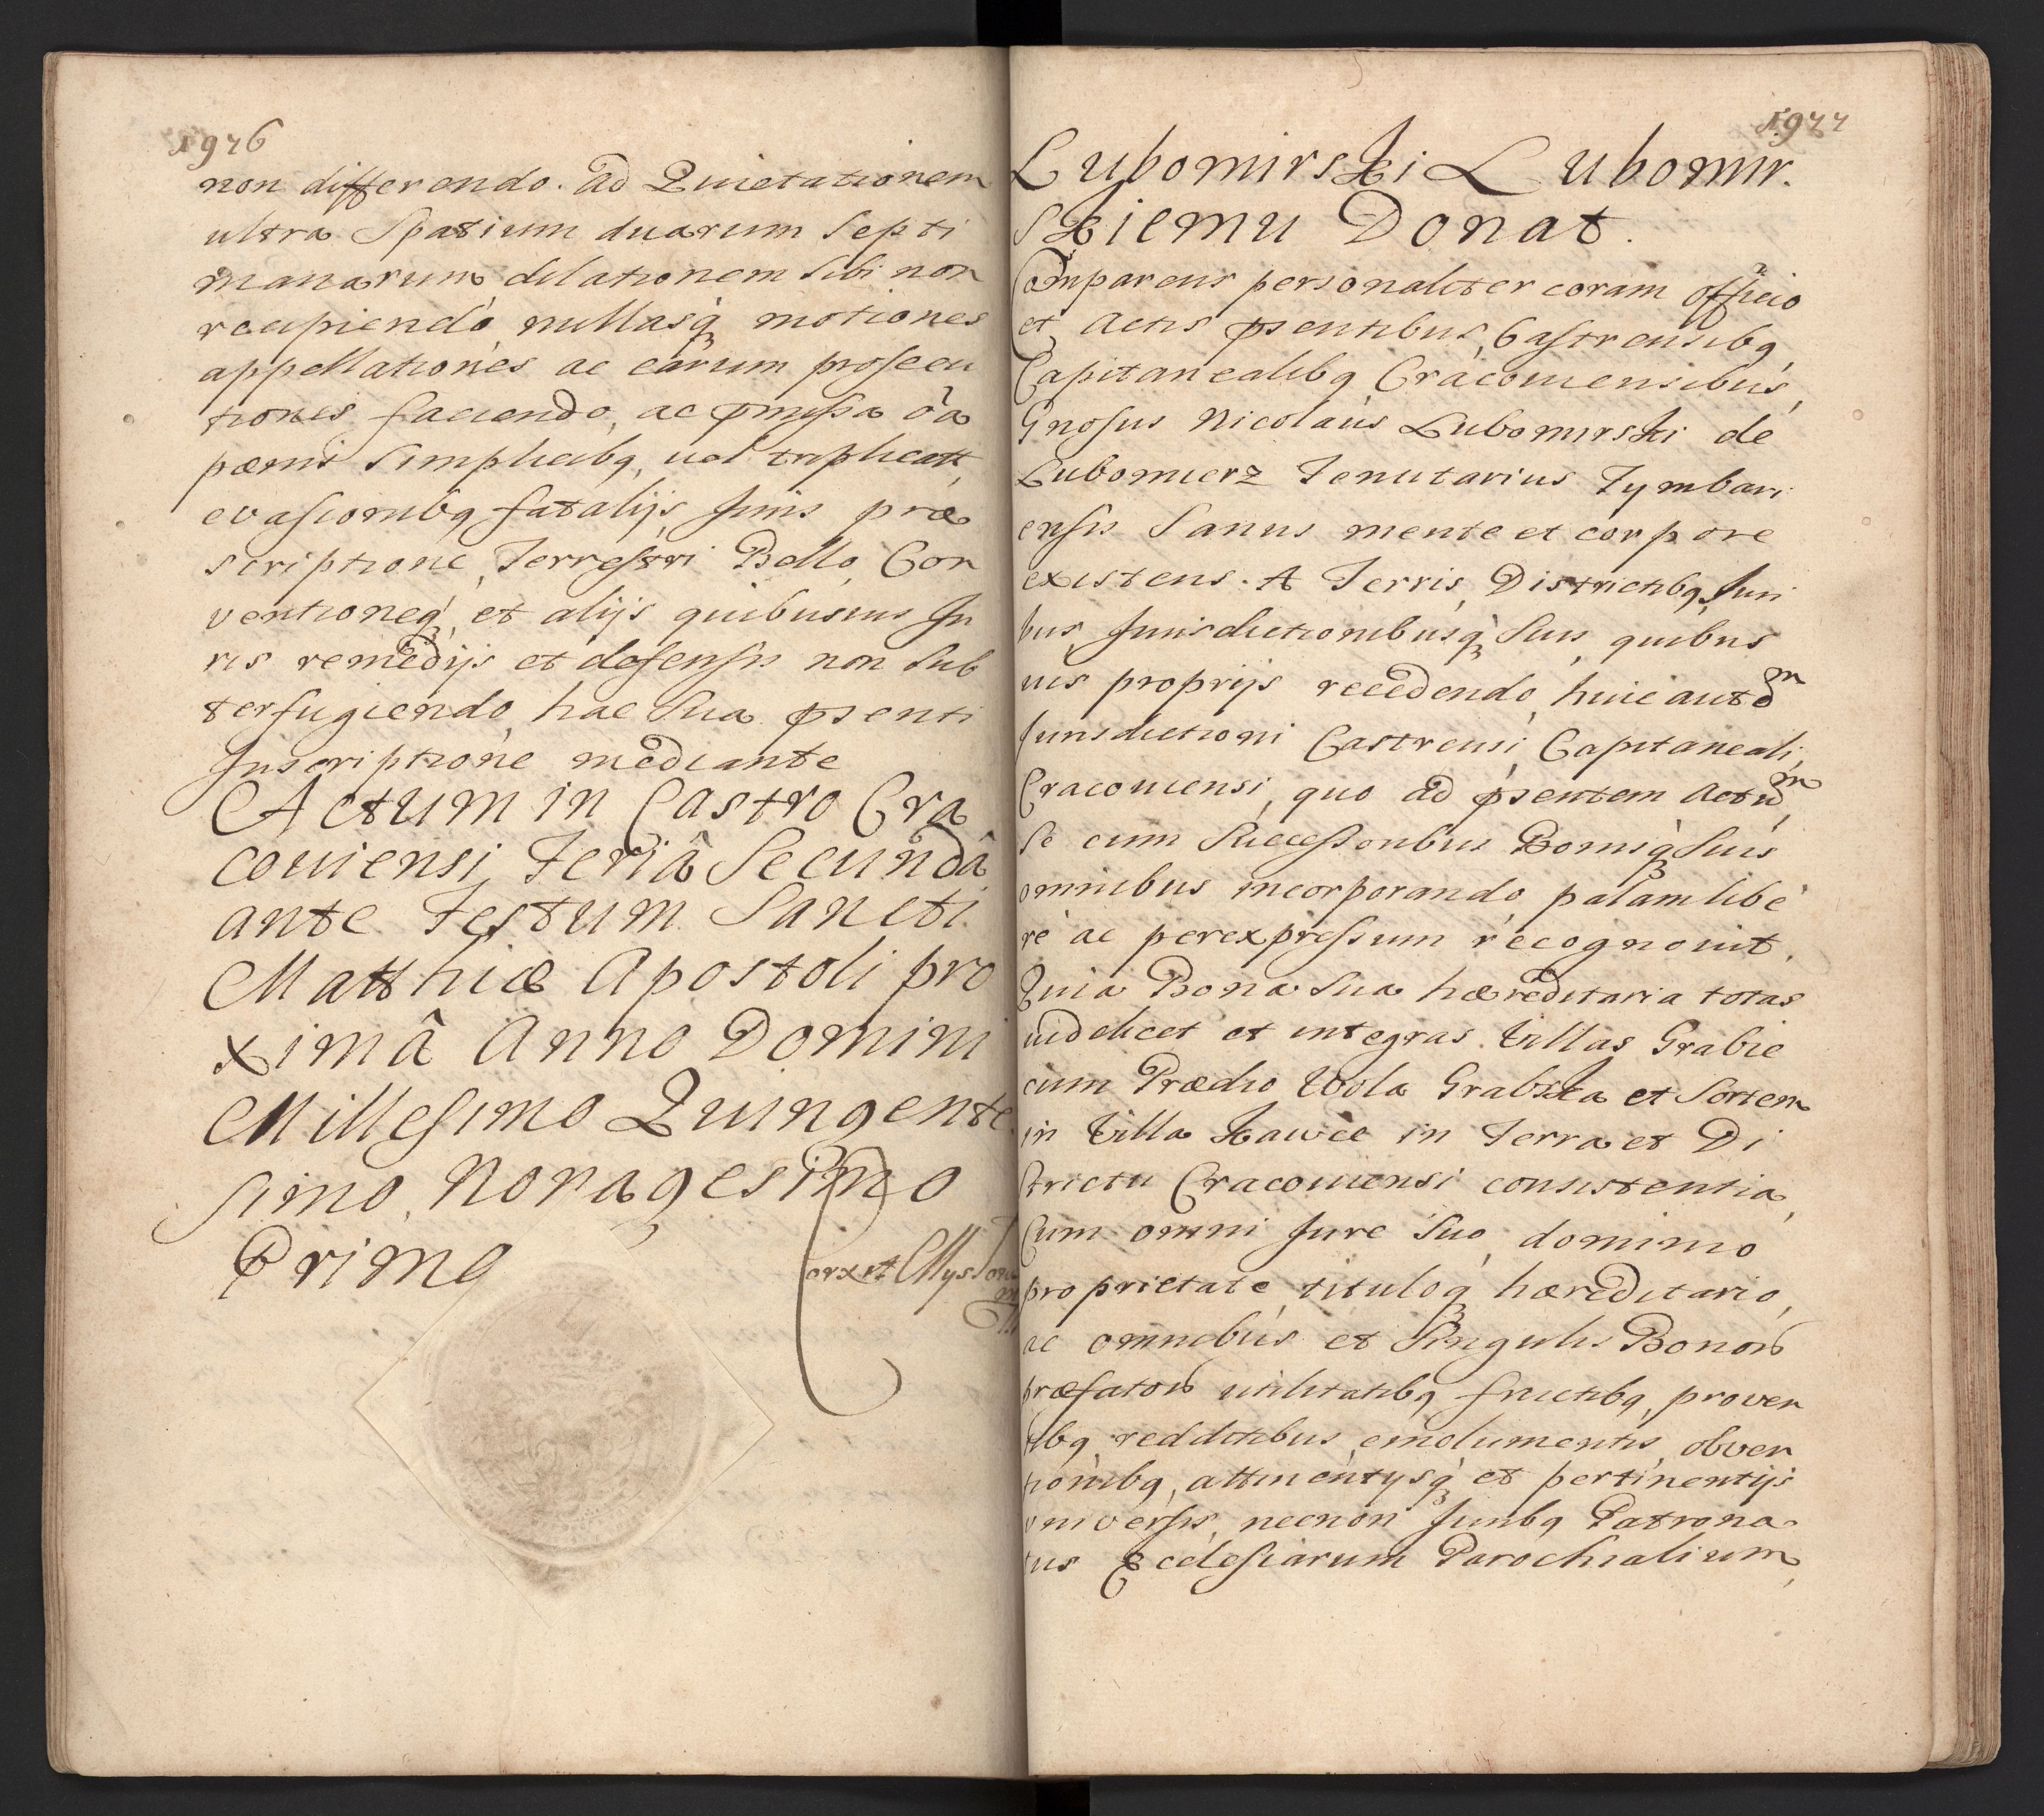 1976
non differendo. ad Quietationem
ultra Spatium duarum Septi
manarum dilationem Sibi non
recipiendo nullasq motiones
appellationes ac earum prosecu
tiones faciendo, ac pmissa oa
pœnis Simplicibq, uel triplicatt
evasionibq fatalijs Juris præ
scriptione, Terrestri Bello, Con
ventioneq et alijs quibusuis Ju
ris remedijs et defensis non Sub
terfugiendo hac Sua psenti
Inscriptione mediante
Actum in Castro Cra
couiensi Feriâ Secundâ
ante Festum Sancti
Matthiæ Apostoli pro
ximâ Anno Domini
Millesimo Quingente
simo Nonagesimo
Primo
1977
Lubomirski Lubomir.
skiemu Donat.
Comparens personaliter coram officio
et Actis psentibus, Castrensibq
Capitanealibq Cracouiensibus
Gnosus Nicolaus Lubomirski de
Lubomierz Tenutarius Tymbari
ensis Sanus mente et corpore
existens. A Terris, Districtibq, Juri
bus, Jurisdictionibusq Suis, quibus
uis proprijs recedendo, huic autem
Jurisdictioni Castrensi, Capitaneali,
Cracouiensi, quo ad psentem Actum
Se cum Successoribus Bonisq Suis
omnibus incorporando palam libe
re ac per expressum recognouit,
Quia Bona Sua hæreditaria totas
uidelicet et integras Villas Grabie
cum Prædio Wola Grabska et Sortem
in Villa Kawce in Terra et Di
strictu Cracouiensi consistentia,
Cum omni Jure Suo, dominio
proprietate tituloq hæreditario,
ac omnibus et Singulis Bonor
præfator utilitatibq fructibq, proven
tibq redditibus emolumentis, obven
tionibq, attinentysq et pertinentijs
universis, necnon Juribq Patrona
tus Ecclesiarum Parochialium,